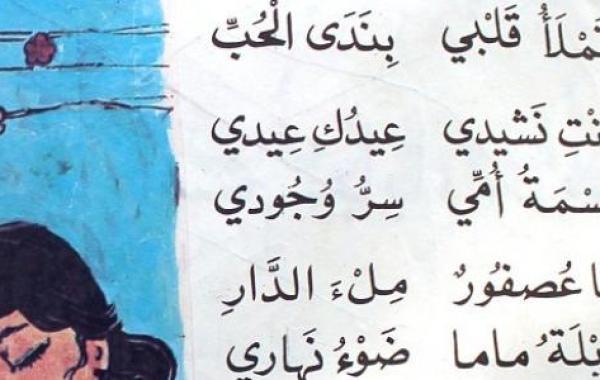 تَمْلَأُ قَلْبِي بِنَدَى الْحُبِّ
نْتِ نَشيدي عِيدُكِ عِيدي
سْمَةُ أُمِّي سِرُّ وُجُودي
ا عُصفورٌ مِلْءَ الدَّارِ
بْلَةُ ماما ضَوْءُ نَهَاري